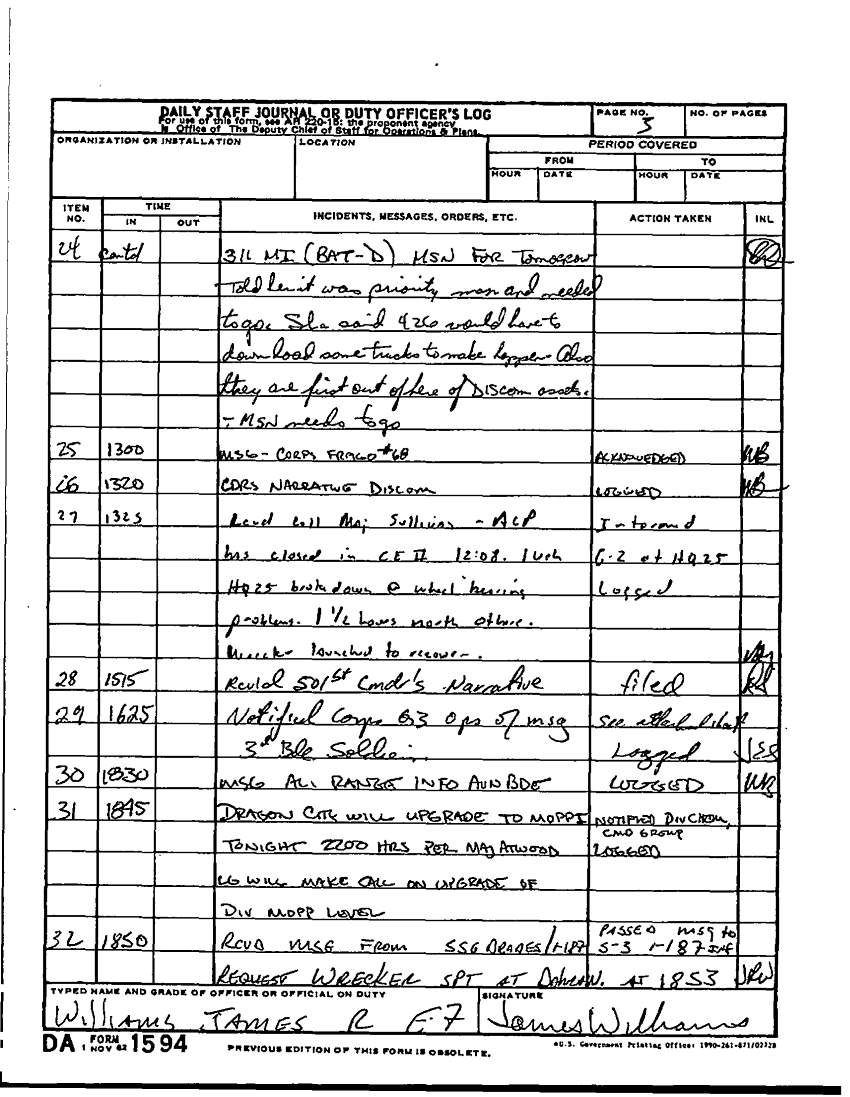 DAILY STAFF JOURNAL OR DUTY OFFICER'S LOG
For use of this form, see AR 220-15; the proponent agency
is Office of The Deputy Chief of Staff for Operations & Plans.
PAGE NO.
3
NO. OF PAGES
ORGANIZATION OR INSTALLATION
LOCATION
PERIOD COVERED
FROM
TO
HOUR
DATE
HOUR
DATE
ITEM NO.
TIME
IN
OUT
INCIDENTS, MESSAGES, ORDERS, ETC.
ACTION TAKEN
INL
24 contd 311 MI (BAT-D) MSN FOR Tomorrow
Told her it was priority msn and needed
to go. She said 426 would have to
download some trucks to make happen. Also
they are first out of here of DISCOM assets.
- MSN needs to go
25 1300 MSG - CORPS FRAGO #68 ACKNOWLEDGED WB
26 1320 CDRS NARRATIVE DISCOM LOGGED WB
27 1325 Recvd call Maj Sullivan - ACP
has closed in CE II 12:08. 1 veh G-2 at HQ25
HQ25 broke down @ wheel bearing Logged
problems. 1 1/2 hours north of there.
Wrecker launched to recover.
28 1515 Rcvd 501st Cmdr's Narrative filed
29 1625 Notified Corps G3 Ops of msg See attached sheet
3rd Bde Soldier. Logged JSS
30 1830 MSG ALI RANGE INFO AVN BDE LOGGED WB
31 1845 DRAGON CITY WILL UPGRADE TO MOPP I NOTIFIED DIV CHEM,
CMD GROUP
TONIGHT 2200 HRS PER MAJ ATWOOD LOGGED
CG WILL MAKE CALL ON UPGRADE OF
DIV MOPP LEVEL
32 1850 RCVD MSG FROM SSG DRADES/1-187 PASSED MSG to
S-3 1-187 INF
REQUEST WRECKER SPT AT AT 1853 JRW
TYPED NAME AND GRADE OF OFFICER OR OFFICIAL ON DUTY
Williams JAMES R E-7
SIGNATURE
James Williams
DA FORM 1 NOV 62 1594
PREVIOUS EDITION OF THIS FORM IS OBSOLETE.
*U.S. Government Printing Office: 1990-261-871/02728